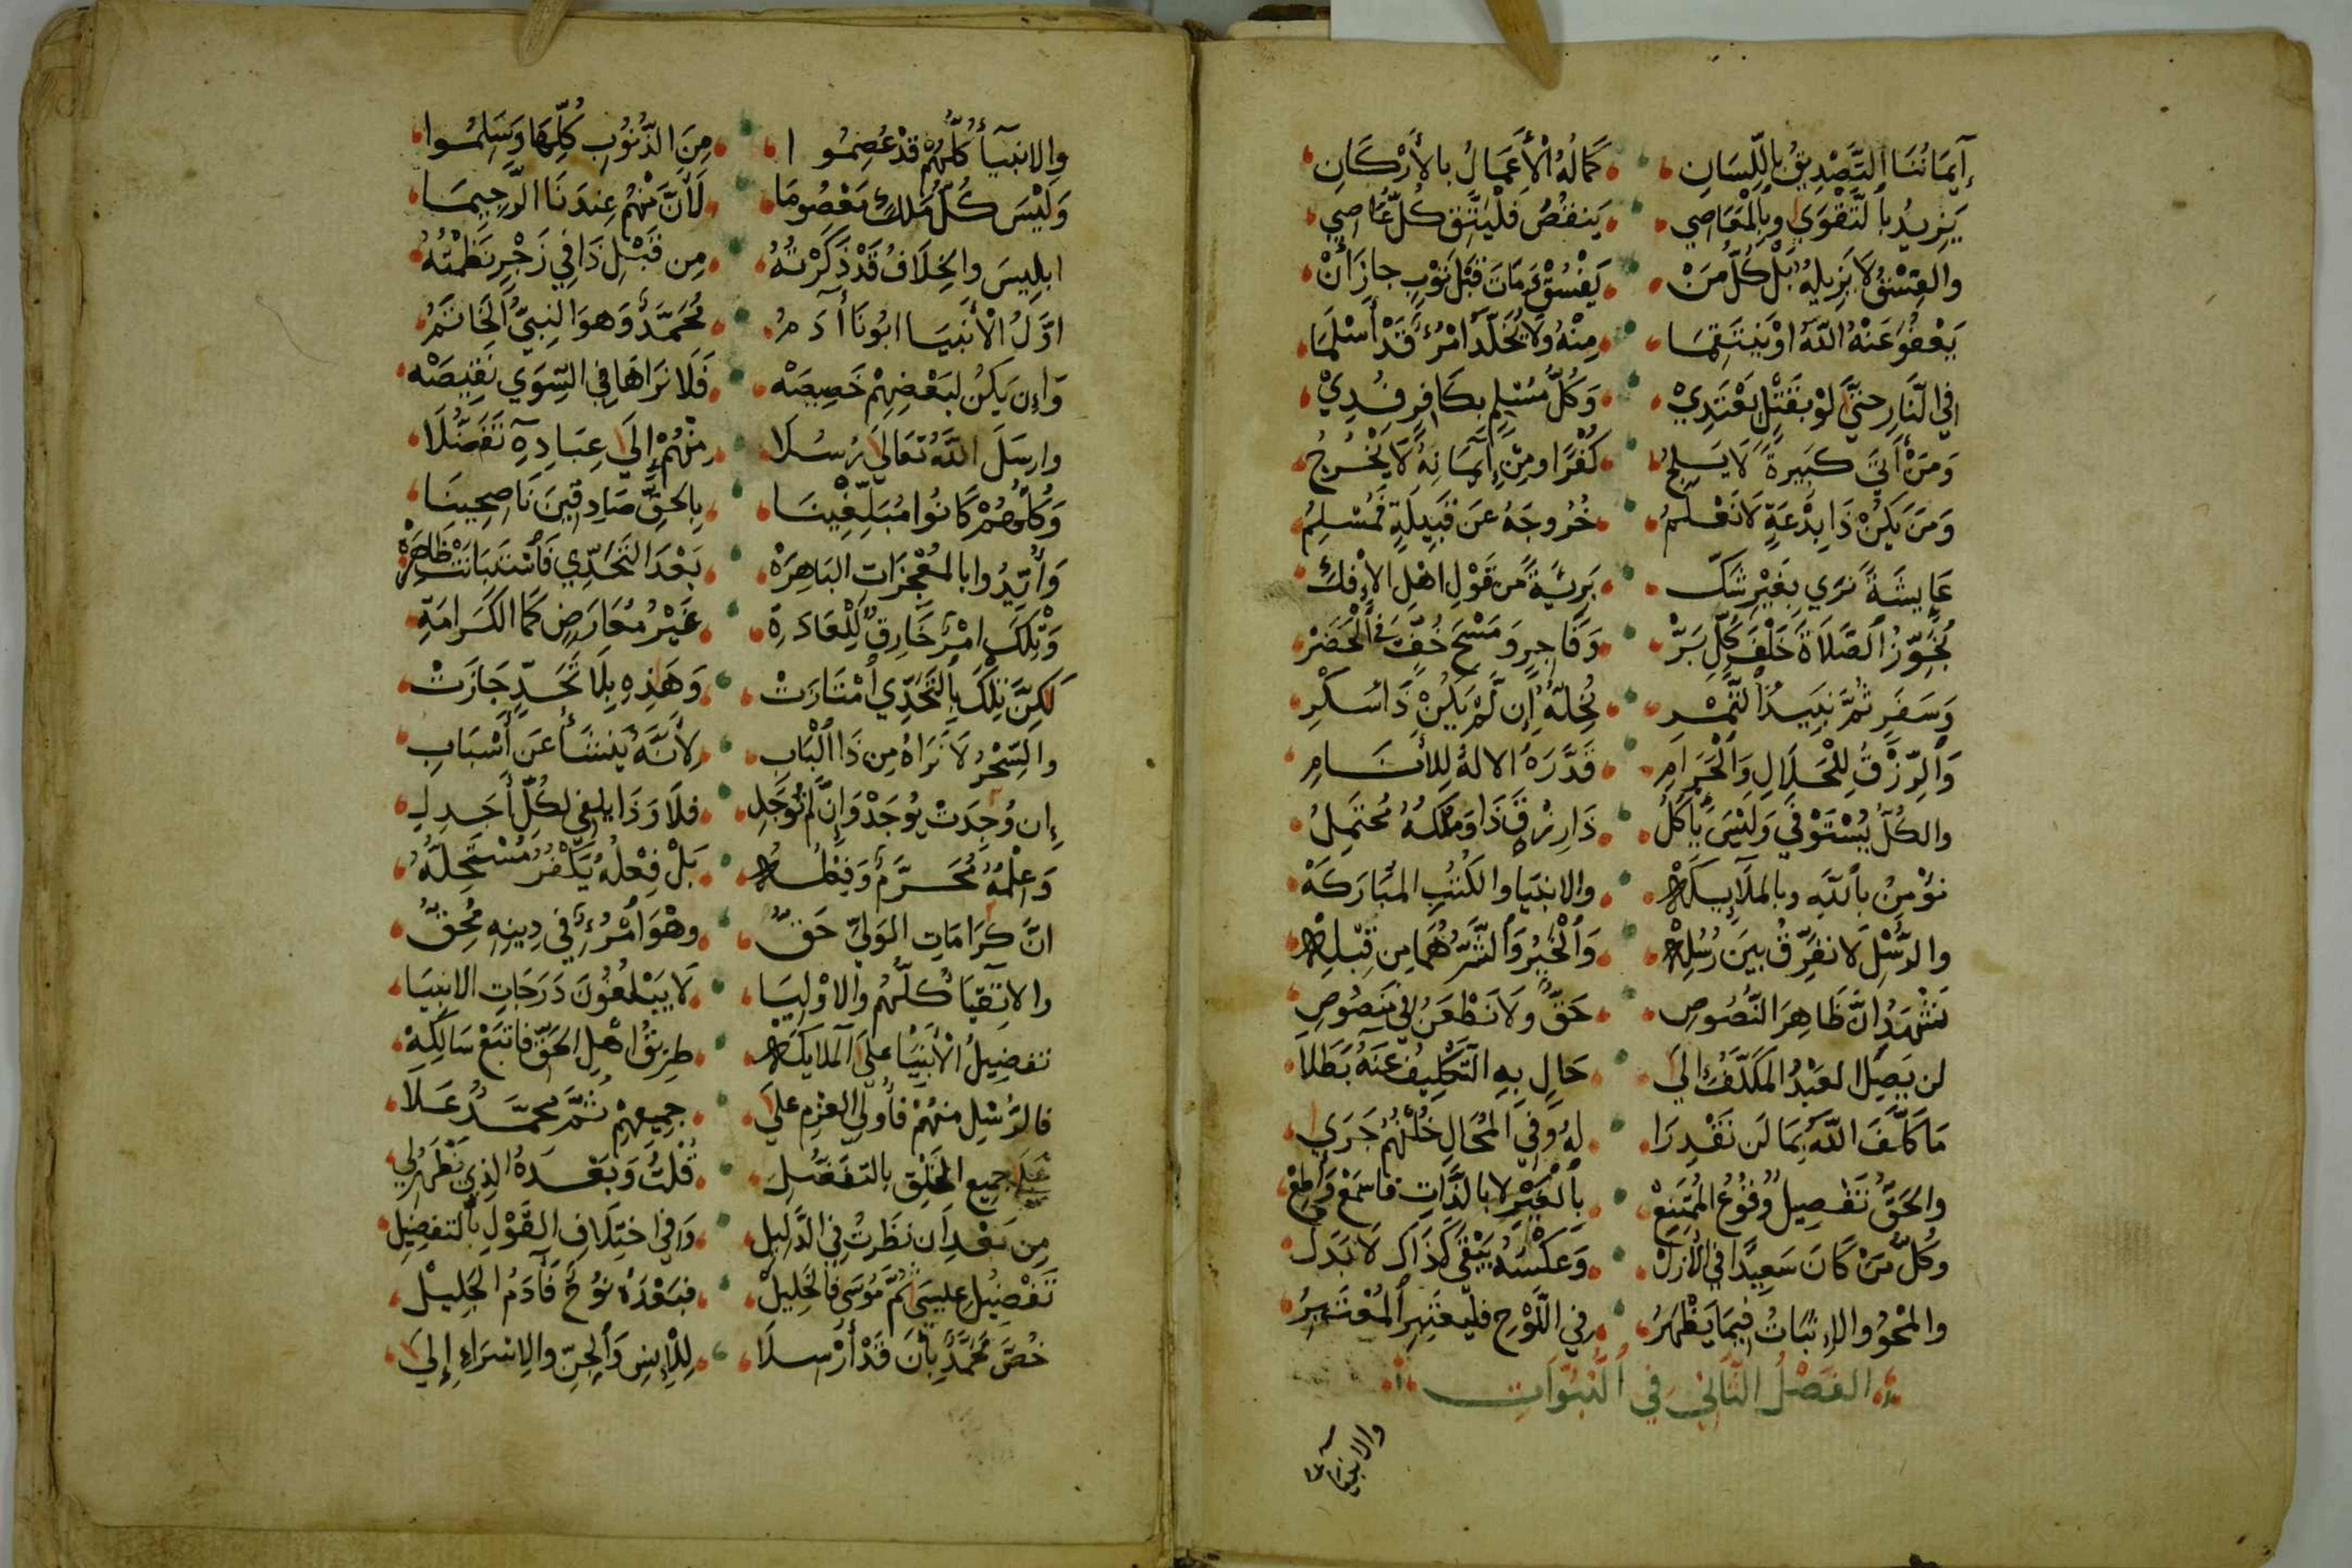 إيمَانُنَا التَّصْدِيقُ بِاللِّسَانِ كَمَالُهُ الْأَعْمَالُ بالأَرْكَانِ
يَزِيدُ بِالتَّقْوَي وبِالْمَعَاصِي يَنقُصُ فَلْيَتَّقِ كُلُّ عَاصِي
والفِسْقُ لَا يُزِيلُهُ بَلْ كُلُّ مَنْ يَفْسُقْ وَمَاتَ قَبْلَ تَوْبٍ جازَ أَنْ
يَعْفُوَ عَنْهُ اللَّهُ اوْ يَنْتَقِمَا مِنْهُ ولَا يُخَلَّدُ امْرُؤٌ قَدْ أَسْلَمَا
فِي النَّارِ حتَّي لَوْ بِقَتْلٍ يَعْتَدِيْ وَكُلُّ مُسْلِمٍ بِكَافِرٍ فُدِيْ
وَمَنْ أَتَي كَبِيرةً لَا يَلِجُ كُفْرًا ومِنْ إِيمَانِهِ لَا يَخْرُجُ
وَمَنْ يَكُنْ ذَا بِدْعَةٍ لَا نَعْلَمُ خُرُوجَهُ عَن قِبْلَةٍ فَمُسْلِمُ
عَايِشَةً نَرَي بِغَيْرِ شَكِّ بَرِيَّةً مِن قَوْلِ اهْلِ الإِفْكِ
نُجَوِّزُ الصَّلَاةَ خَلْفَ كُلِّ بَرّْ وَفَاجِرٍ وَمَسْحَ خُفٍّ فِي الْحَضَرْ
وَسَفَرٍ ثُمَّ نَبِيذُ التَّمْرِ نُحِلّهُ إِن لَمْ يَكُنْ ذَا سُكْرِ
وَالرِّزْقُ لِلْحَلَالِ وَالْحَرَامِ قَدَّرَهُ الالهُ لِلأَنَامِ
والكُلُّ يُسْتَوْفَي وَلَيْسَ يَأْكُلُ ذَا رِزْقَ ذَا وَمِلْكُهُ مُحْتَمِلُ
نُؤْمِنُ بِاللَّهِ وبالملَايِكَةْ والانبيَا والكُتُبِ المُبَارَكَةْ
والرُّسْلِ لَا نُفَرِّقُ بَينَ رُسُلِهْ وَالْخَيْرُ وَالشَّرُّ هُمَا مِن قِبَلِهْ
نَشْهَدُ انَّ ظَاهِرَ النُّصُوصِ حَقٌّ ولَا نَطْعَنُ فِي مَنْصُوصِ
لن يَصِلَ العَبْدُ المُكَلَّفُ الَي حَالٍ بِهِ التَّكْلِيفُ عَنْهُ بَطَلَا
مَا كَلَّفَ اللَّهُ بِمَا لَن نَقْدِرَا لهُ وَفِي المُحَالِ خُلْفُهُم جَرَي
والحَقُّ تَفْصِيلُ وُقُوعُ المُمْتَنِعْ بِالْغَيْرِ لا بالذَّاتِ فاسْمَعْ وَأَطِعْ
وَكُلُّ مَن كَانَ سَعِيدًا فِي الْأَزَلْ وَعَكْسُهُ يَبْقَي كَذَاكَ لَا بَدَلْ
والمَحْوُ والإِثْبَاتُ فِيمَا يَظْهَرُ فِي اللَّوْحِ فليعْتَبِرِ المُعْتَبِرُ
الفَصْلُ الثَّانِي فِي النُّبُوَّاتِ
والانبيا
والانبيَآ كُلُّهُمْ قَدْ عُصِمُوا مِنَ الذُّنُوبِ كُلِّهَا وَسَلِمُوا
وَلَيْسَ كُلُّ مَلَكٍ مَعْصُومَا لَأَنَّ مِنْهُم عِندَنَا الرَّجِيمَا
ابلِيسَ والخِلَافُ قَدْ ذَكَرْتُهُ مِن قَبْلِ ذَا فِي زَجْرٍ نَظَمْتُهُ
اوَّلُ الْأَنْبِيَا ابُونَا آدَمُ مُحَمَّدٌ وَهوَ النَّبِيُّ الْخَاتَمُ
وَإِن يَكُنْ لِبَعْضِهِمْ خَصِيصَهْ فَلَا نَرَاهَا فِي السِّوَي نَقِيصَهْ
وارسَلَ اللَّهُ تَعَالَي رُسُلَا مِنْهُمْ إِلَي عِبَادِهِ تَفَضُّلَا
وَكُلُّهُمْ كَانُوا مُبَلِّغِينَا بِالحَقِّ صَادِقِينَ نَاصِحِينَا
وَأُيِّدُوا بالمُعْجِزَاتِ البَاهِرَهْ بَعْدَ التَّحَدِّي فَاسْتَبَانَتْ ظَاهِرَهْ
وَتِلْكَ امْرٌ خَارِقٌ لِلْعَادَةِ غَيْرُ مُعَارَضٍ كَمَا الكَرَامَةِ
لَكِنَّ تِلْكَ بِالتَّحَدِّي امْتَازَتْ وَهَذِهِ بِلَا تَحَدٍّ جَازَتْ
والسِّحْرُ لَا نَرَاهُ مِن ذَا الْبَابِ لِأَنَّهُ يَنشَأُ عَن أَسْبَابِ
إِن وُجِدَتْ يُوجَدْ وَإِن لَمْ تُوجَدِ فَلَا وَذَا يلغي لكُلِّ أَحَدِ
وَعِلْمُهُ مُحَرَّمٌ وَفِعْلُهُ بَلْ فِعْلُهُ يَكْفُرُ مُسْتَحِلُّهُ
انَّ كَرَامَاتِ الوَلِيِّ حَقُّ وهْوَ امْرُؤٌ فِي دِينِهِ مُحِقُّ
والاتْقِيَا كُلُّهُم والاوْلِيَا لَا يَبْلُغُونَ دَرَجَاتِ الانبِيَا
تفضِيلُ الْأَنْبِيَا علَي المَلايكَهْ طريقُ اهْلِ الحَقِّ فاتبَعْ سَالِكِهْ
فالرُّسْلِ منهُمْ فأُولِي العَزْمِ علَي جميعهِمْ ثُمَّ مُحمَّدُ عَلَا
عَلَي جميع الخَلْقِ بالتفَضُّلِ قُلتُ وَبَعْدَهُ الذِي يَظْهَرُ لِي
مِن بَعْدِ ان نَظَرتُ فِي الدَّلِيلِ وَفِي اختِلَافِ القَوْلِ بِالتفضِيلِ
تَفْضِيلُ عِيسَي ثُمَّ مُوسَي فَالْخَلِيلْ فبَعْدَهُ نُوحٌ فَآدَمُ الجَلِيلْ
خُصَّ مُحَمَّدٌ بِأَن قَدْ أُرْسِلَا لِلْإِنسِ وَالجِنِّ والِاسْرَاءِ إِلَي